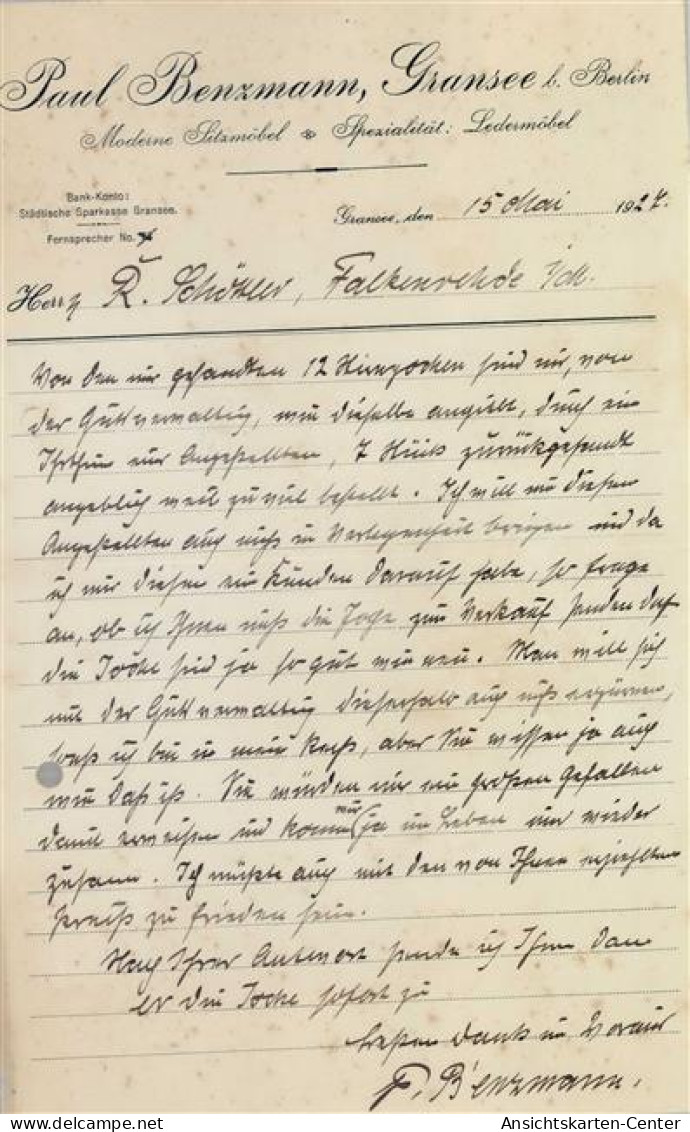 Paul Benzmann, Gransee b. Berlin
Moderne Sitzmöbel Spezialität: Ledermöbel
Bank-Konto:
Städtische Sparkasse Gransee.
Fernsprecher No.
Gransee, den 15 Mai 1927.
Herrn R. Falkenrehde
Von den mir gesandten 12 sind mir, von
der Gutsverwaltung, wie dieselbe angiebt, durch ein
Angestellten, 7 Stück zurückgesandt
angeblich weil zu viel bestellt. Ich will nun diesen
Angestellten auch nicht in Verlegenheit bringen und da
ich nur diesen ein Kunden darauf habe, so frage
an, ob ich Ihnen nicht die zum Verkauf senden darf
die sind ja so gut wie neu. Man will sich
mit der Gutsverwaltung dieserhalb auch nicht erzürnen,
ich bin in mein Recht, aber Sie wissen ja auch
wie daß ist. Sie würden mir ein großen Gefallen
damit erweisen und komm wir ja im Leben mir wieder
zusamm. Ich müßte auch mit den von Ihnen erziehlten
Preiß zu frieden sein.
Nach Ihrer Antwort sende ich Ihnen dan
er die sofort zu
Besten Dank im Voraus
P. Benzmann.
Ansichtskarten-Center